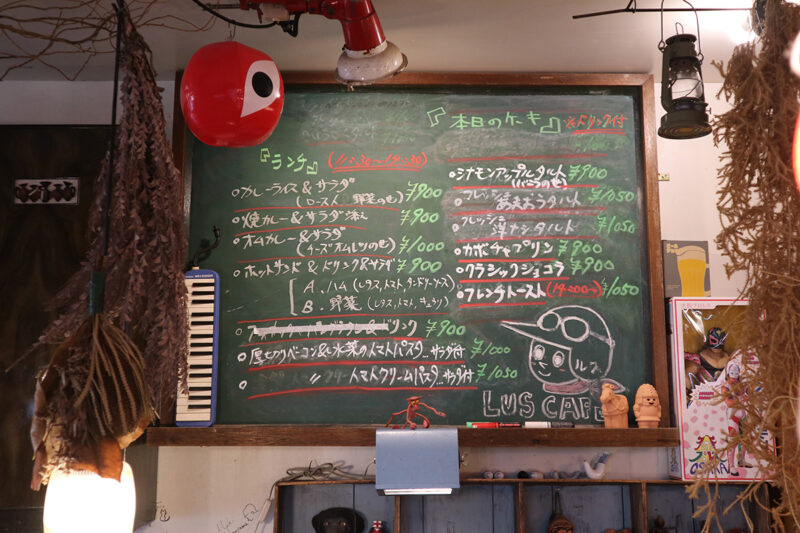 『ランチ』
○カレーライス＆サラダ ¥900
(ロースト 野菜のせ)
○焼カレー＆サラダ添え ¥900
○オムカレー＆サラダ ¥1000
(チーズオムレツのせ)
○ホットサンド＆ドリンク＆サラダ ¥900
A.ハム(レタス,トマト,
B.野菜(レタス,トマト,キュウリ)
ドリンク ¥900
○厚切りベーコン＆水菜のトマトパスタ…サラダ付 ¥1000
○ 〃 トマトクリームパスタ…サラダ付 ¥1050
『本日のケーキ』 ※ドリンク付
○シナモンアップルタルト ¥900
○フレッシュ タルト ¥1050
○フレッシュ 洋ナシタルト ¥1050
○カボチャプリン ¥900
○クラシックショコラ ¥900
○フレンチトースト (14:00〜) ¥1050
ルス
LUS CAFE
OSAKA